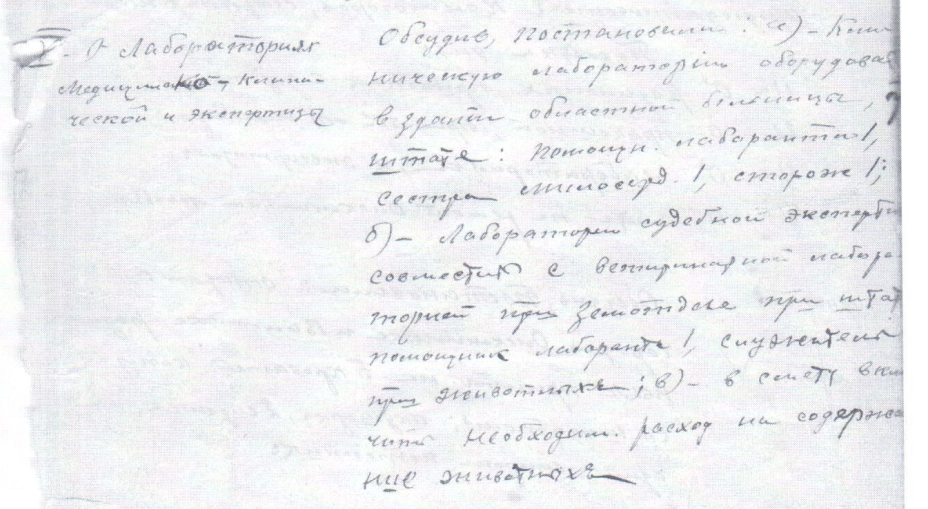 I. О Лабораториях
Медицинской, Клини-
ческой и экспертизы
Обсудив, Постановили: а) - Кли-
ническую лабораторию оборудоват
в здании областной больницы,
штате: Помощн. лаборанта 1,
сестра милосерд. 1, сторож 1;
б) - Лабораторию судебной эксперти
совместить с ветеринарной лабора
торией при Земотделе при штат
помощник лаборанта 1, служитель
при животныхъ; в) - в смету вклю
чить необходим. расход на содержа
ние животныхъ